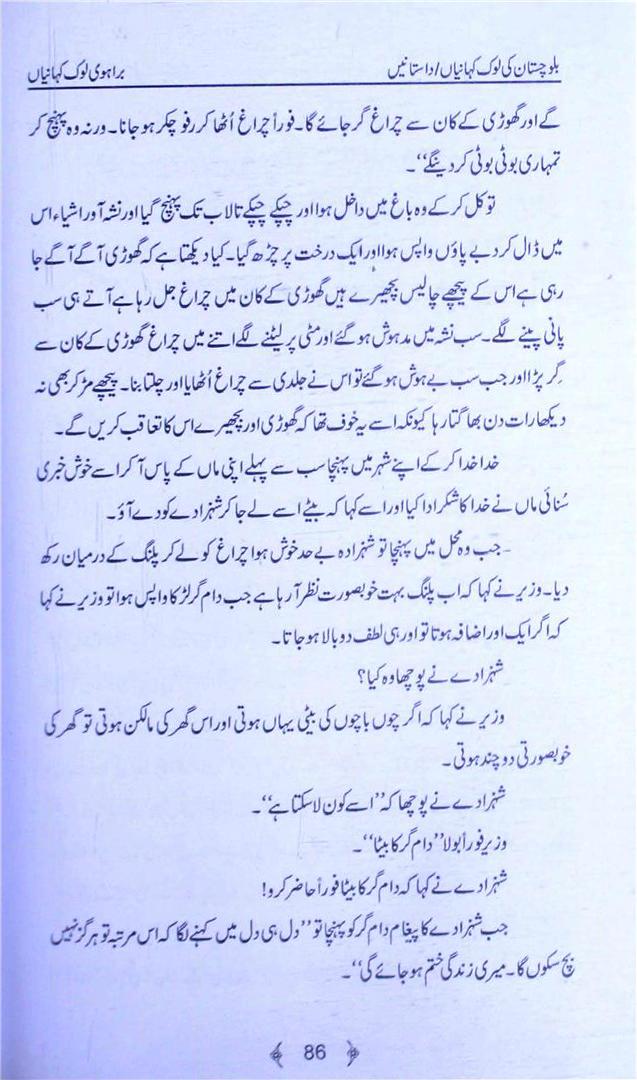 بلوچستان کی لوک کہانیاں/داستانیں
براہوی لوک کہانیاں
گے اور گھوڑی کے کان سے چراغ گر جائے گا۔ فوراً چراغ اُٹھا کر رفو چکر ہو جانا۔ ورنہ وہ پہنچ کر
تمہاری بوٹی بوٹی کر دینگے‘‘۔
توکل کر کے وہ باغ میں داخل ہوا اور چپکے چپکے تالاب تک پہنچ گیا اور نشہ آور اشیاء اس
میں ڈال کر دبے پاؤں واپس ہوا اور ایک درخت پر چڑھ گیا۔ کیا دیکھتا ہے کہ گھوڑی آگے آگے جا
رہی ہے اس کے پیچھے چالیس بچھیرے ہیں گھوڑی کے کان میں چراغ جل رہا ہے آتے ہی سب
پانی پینے لگے۔ سب نشہ میں مدہوش ہو گئے اور مٹی پر لیٹنے لگے اتنے میں چراغ گھوڑی کے کان سے
گِر پڑا اور جب سب بے ہوش ہو گئے تو اس نے جلدی سے چراغ اُٹھایا اور چلتا بنا۔ پیچھے مڑ کر بھی نہ
دیکھا رات دن بھاگتا رہا کیونکہ اسے یہ خوف تھا کہ گھوڑی اور بچھیرے اس کا تعاقب کریں گے۔
خدا خدا کر کے اپنے شہر میں پہنچا سب سے پہلے اپنی ماں کے پاس آ کر اسے خوش خبری
سُنائی ماں نے خدا کا شکر ادا کیا اور اسے کہا کہ بیٹے اسے لے جا کر شہزادے کو دے آؤ۔
۔ جب وہ محل میں پہنچا تو شہزادہ بے حد خوش ہوا چراغ کو لے کر پلنگ کے درمیان رکھ
دیا۔ وزیر نے کہا کہ اب پلنگ بہت خوبصورت نظر آ رہا ہے جب دام گر لڑکا واپس ہوا تو وزیر نے کہا
کہ اگر ایک اور اضافہ ہوتا تو اور ہی لطف دوبالا ہو جاتا۔
شہزادے نے پوچھا وہ کیا؟
وزیر نے کہا کہ اگر چوں باچوں کی بیٹی یہاں ہوتی اور اس گھر کی مالکن ہوتی تو گھر کی
خوبصورتی دوچند ہوتی۔
شہزادے نے پوچھا کہ ’’اسے کون لا سکتا ہے‘‘۔
وزیر فوراً بولا ’’دام گر کا بیٹا‘‘۔
شہزادے نے کہا کہ دام گر کا بیٹا فوراً حاضر کرو!
جب شہزادے کا پیغام دام گر کو پہنچا تو ’’دل ہی دل میں کہنے لگا کہ اس مرتبہ تو ہرگز نہیں
بچ سکوں گا۔ میری زندگی ختم ہو جائے گی‘‘۔
86